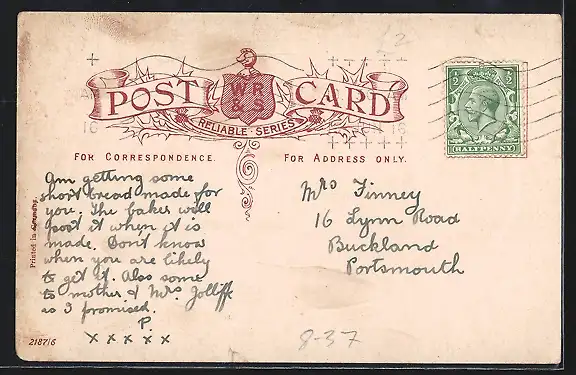 POST CARD
W R
& S
RELIABLE SERIES
FOR CORRESPONDENCE.
FOR ADDRESS ONLY.
½ ½
HALFPENNY
Am getting some
short bread made for
you. The baker will
post it when it is
made. Don't know
when you are likely
to get it. Also some
to mother & Mrs Jolliffe
as I promised.
P.
x x x x x
Mrs Finney
16 Lynn Road
Buckland
Portsmouth
Printed in
2187/6
8-37